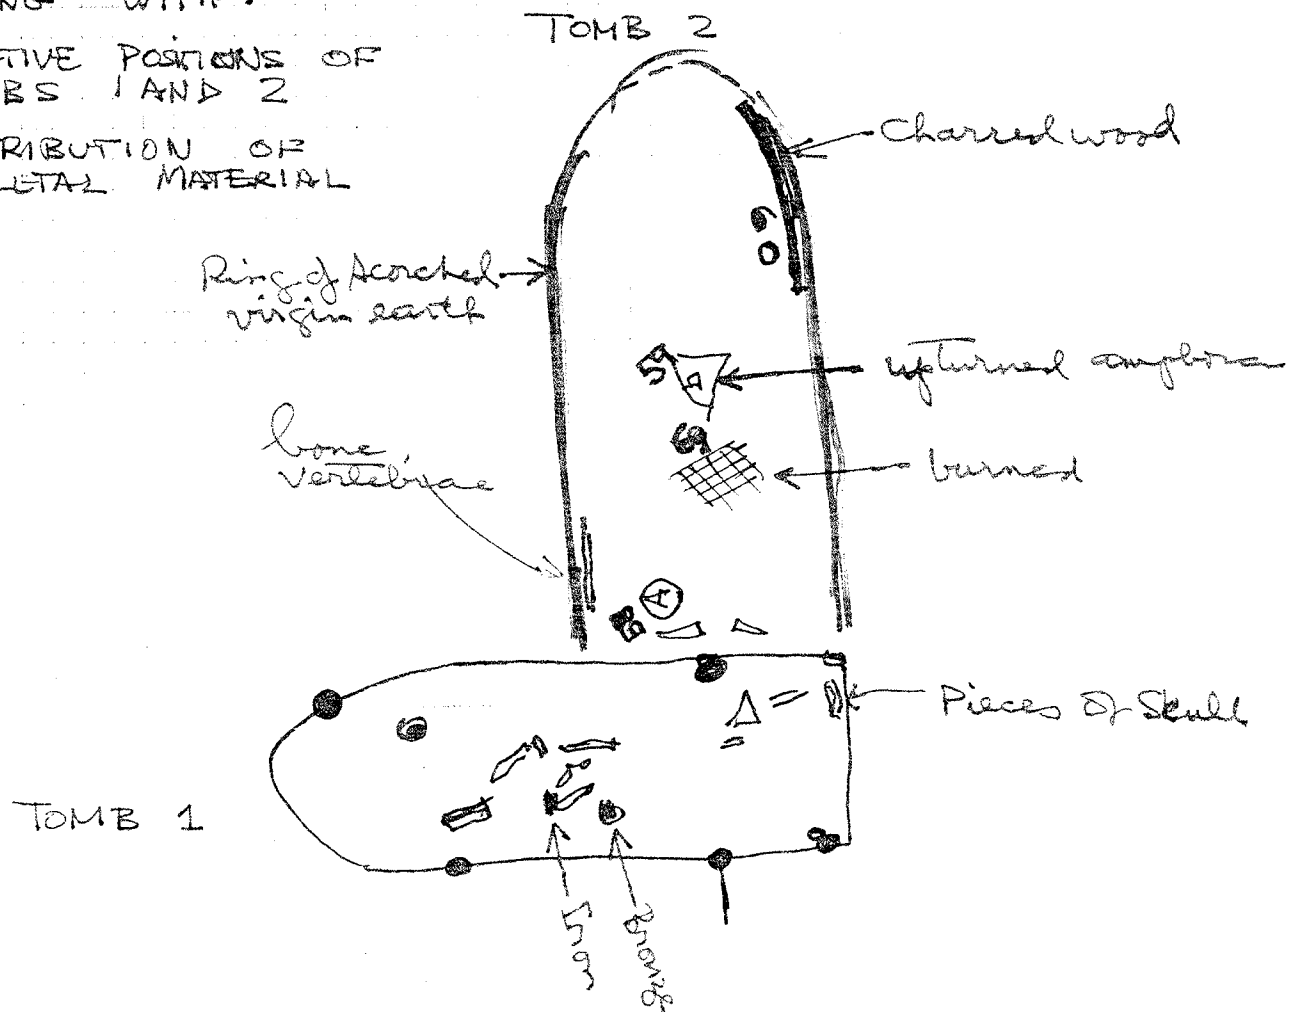 WITH:
TOMB 2
TIVE POSITIONS OF
BS 1 AND 2
RIBUTION OF
LETAL MATERIAL
Charred wood
Ring of scorched
virgin earth
upturned amphora
bone
vertebrae
burned
A
Pieces of Skull
TOMB 1
Iron
Bronze